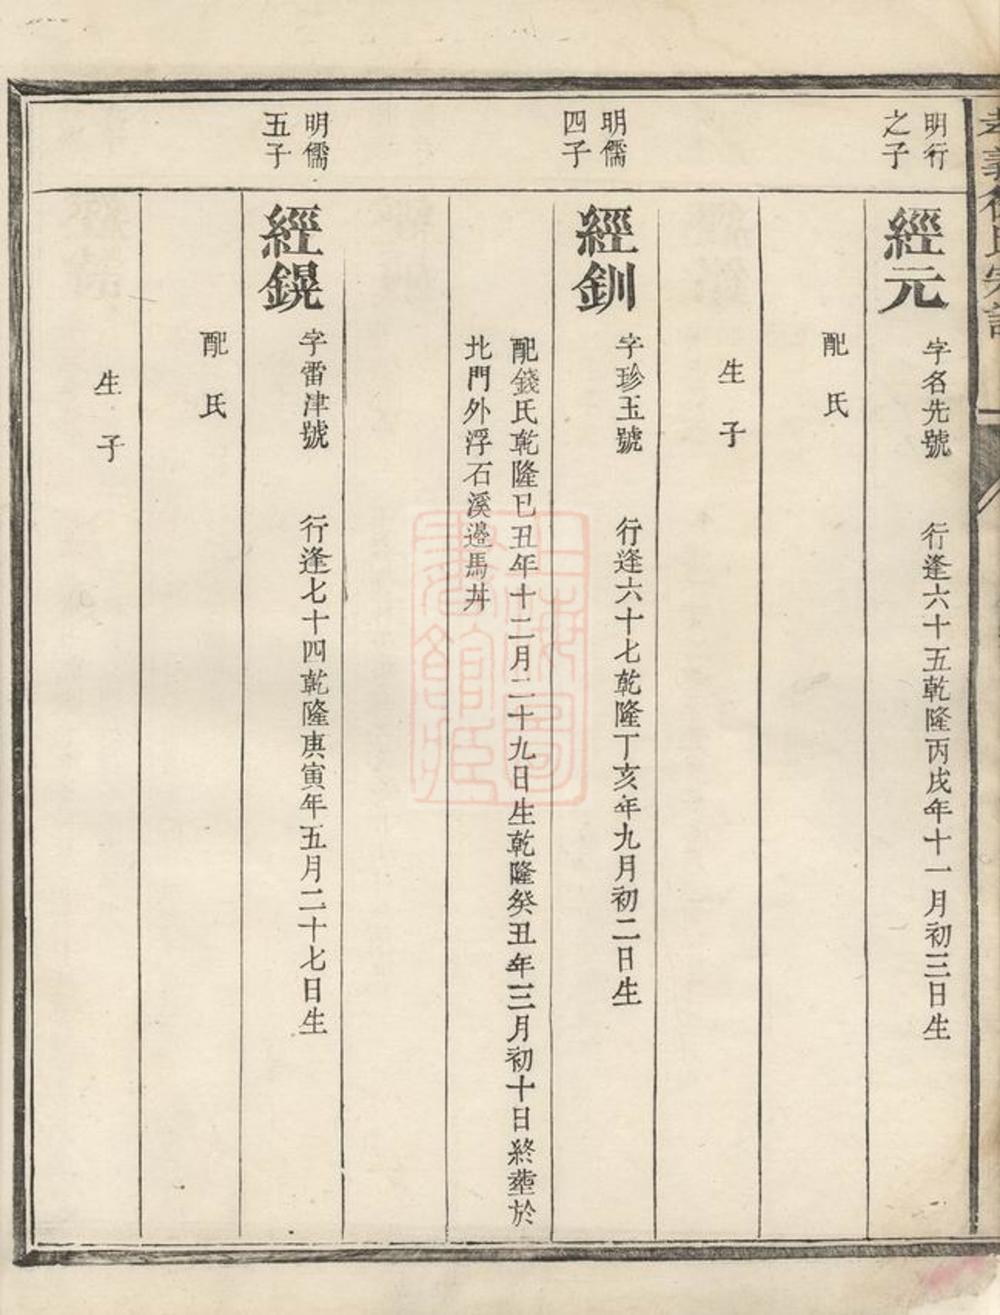 明行
之子
經元
字名先號 行逢六十五乾隆丙戌年十一月初三日生
配 氏
生 子
明儒
四子
經釧
字珍玉號 行逢六十七乾隆丁亥年九月初二日生
配錢氏乾隆巳丑年十二月二十九日生乾隆癸丑年三月初十日終塟於
北門外浮石溪邉馬丼
明儒
五子
經鎤
字雷津號 行逢七十四乾隆庚寅年五月二十七日生
配 氏
生 子
上海圖書館藏